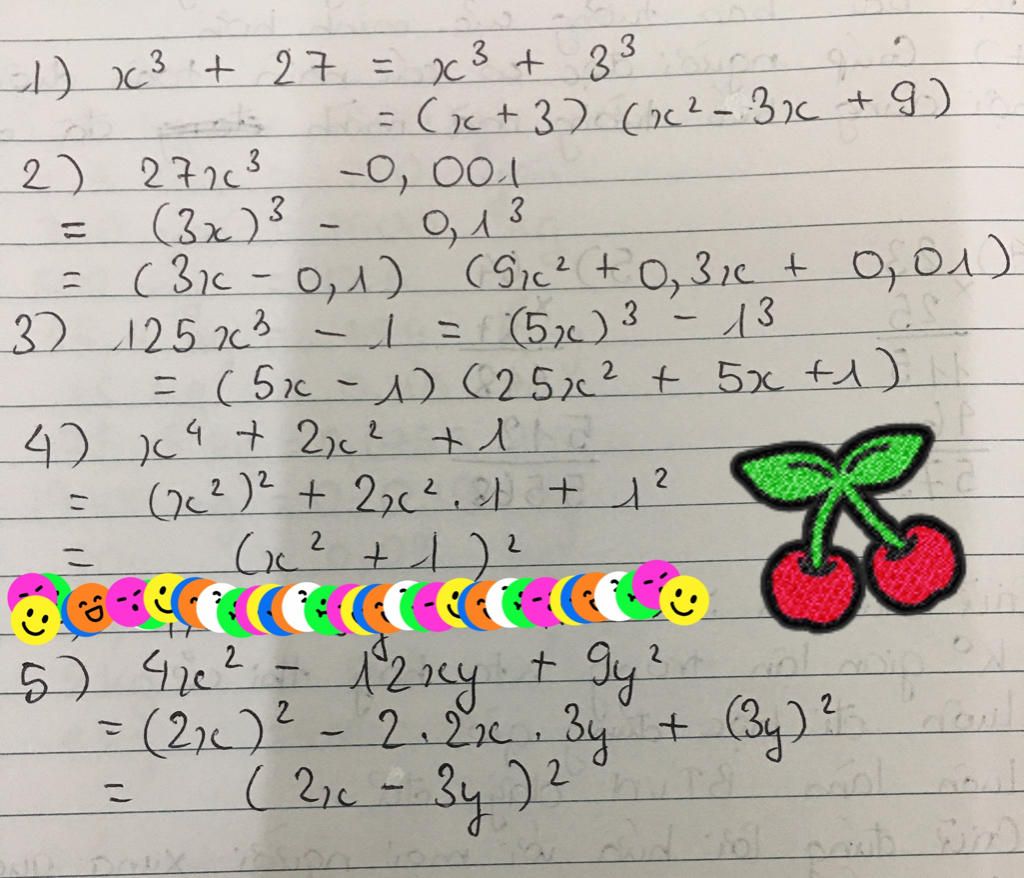 1) x³ + 27 = x³ + 3³
= (x + 3) (x² - 3x + 9)
2) 27x³ -0,001
= (3x)³ - 0,1³
= (3x - 0,1) (9x² + 0,3x + 0,01)
3) 125x³ - 1 = (5x)³ - 1³
= (5x - 1) (25x² + 5x + 1)
4) x⁴ + 2x² + 1
= (x²)² + 2x² . 1 + 1²
= (x² + 1)²
5) 4x² - 12xy + 9y²
= (2x)² - 2 . 2x . 3y + (3y)²
= (2x - 3y)²